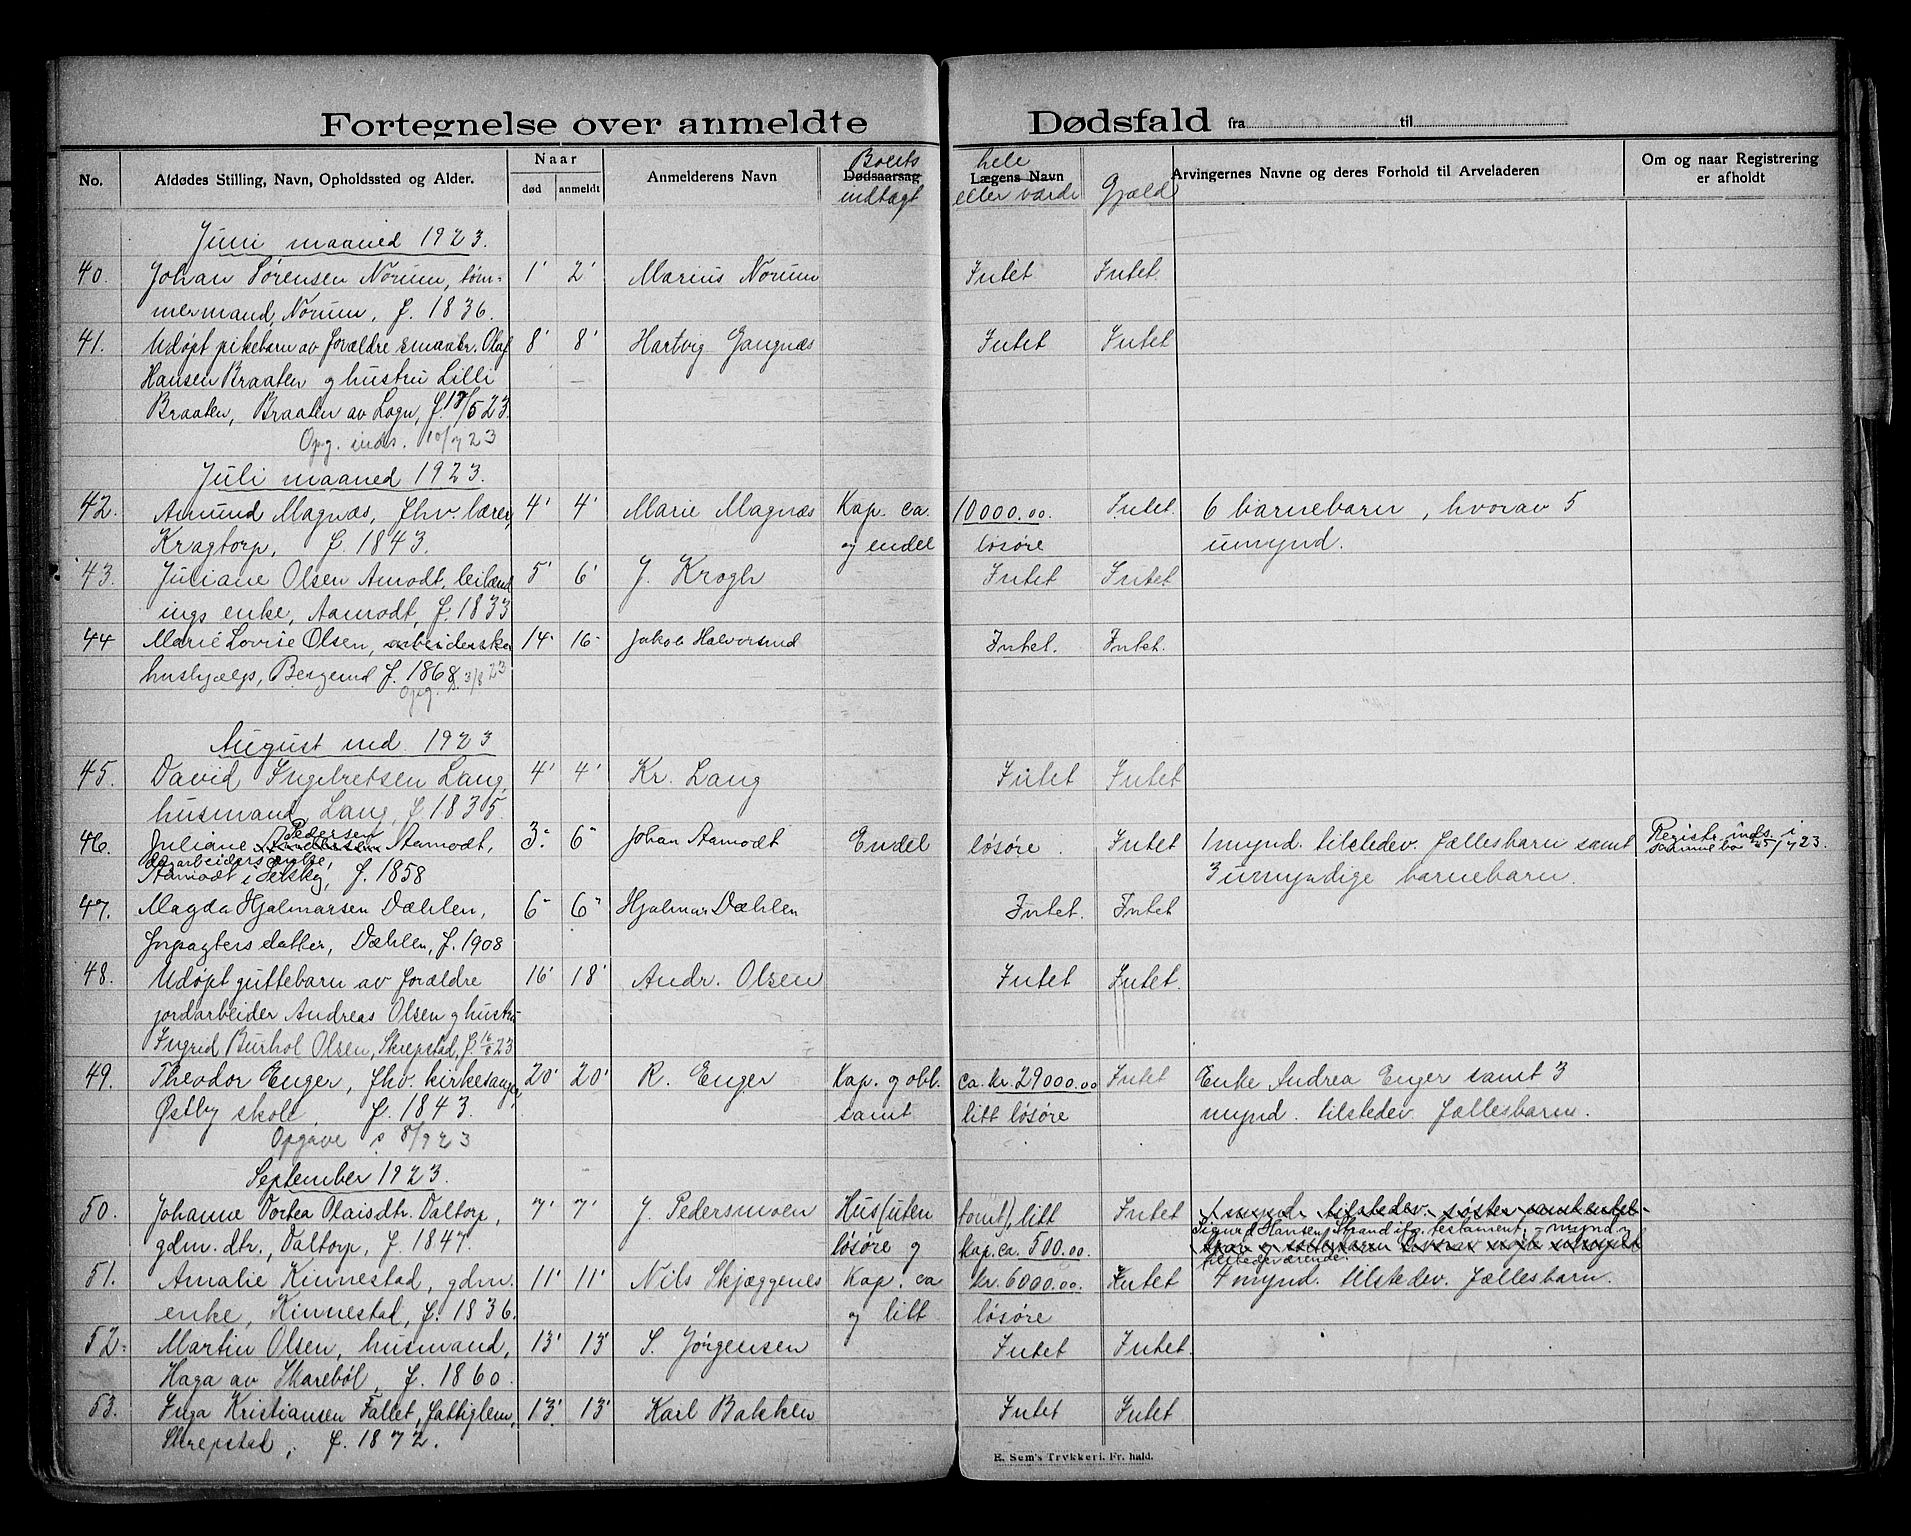 Fortegnelse over anmeldte Dødsfald fra til
No. Afdødes Stilling, Navn, Opholdssted og Alder. Naar død anmeldt Anmelderens Navn Dødsaarsag Boets indtægt Lægens Navn hele eller værdi Gjæld Arvingernes Navne og deres Forhold til Arveladeren Om og naar Registrering er afholdt
Juni maaned 1923.
40. Johan Sørensen Norum, tøm- 1' 2' Marius Norum Intet Intet.
mermand, Norum, f. 1836.
41. Udøpt pikebarn av forældre smaabr. Olaf 8' 8' Hartvig Gangnæs Intet Intet
Hansen Braaten g hustru Lilli
Braaten, Braaten av Logn, f. 18/5 23.
Opg. inds. 10/7 23
Juli maaned 1923.
42. Amund Magnæs, fhv. lærer, 4' 4' Marie Magnæs Kap. ca. 10000.00. Intet. 6 barnebarn, hvorav 5
Kragtorp, f. 1843. og endel løsøre umynd.
43. Juliane Olsen Amodt, leilænd 5' 6' J. Krogh Intet Intet.
ings enke, Aamodt, f. 1833
44 Marie Lovise Olsen, arbeiderske 14" 16" Jakob Halvorsrud Intet. Intet.
hushjælp, Bergerud f. 1868.
Opg. 3/8 23
August md. 1923
45. David Ingebretsen Lang, 4' 4' Kr. Lang Intet Intet
husmand, Lang, f. 1835.
46. Juliane Pedersen Aamodt, 3" 6" Johan Aamodt Endel løsøre. Intet 1 mynd. tilstedev. fællesbarn samt Registr. inds. i
samme bo 25/7 23.
Aamodt i Setskog, f. 1858 3 umyndige barnebarn.
47. Magda Hjalmarsen Dæhlen, 6" 6" Hjalmar Dæhlen Intet. Intet
forpagters datter, Dæhlen, f. 1908
48. Udøpt guttebarn av forældre 16' 18' Andr. Olsen Intet Intet.
jordarbeider Andreas Olsen g hustru
Ingrid Burhol Olsen, Skrepstad, f. 16/8 23
49. Theodor Enger, fhv. kirkesanger, 20' 20' R. Enger Kap. og obl. ca. kr. 29000.00 Intet Enke Andrea Enger samt 3
Østby skole, f. 1843. samt litt løsøre mynd. tilstedev. fællesbarn.
Opgave s 8/9 23
September 1923.
50. Johanne Dortea Olaisdtr. Valtorp, 7' 7' J Pedersmoen Hus (uten tomt), litt Intet 1 mynd. tilstedev. søster
Sigurd Hansen Strand ifg. testament, - mynd. og
gdm. dtr., Valtorp, f. 1847. løsøre og kap. ca. 500.00.
tilstedeværende.
51. Amalie Kinnestad, gdm. 11' 11' Nils Skjæggenes Kap. ca kr. 6000.00. Intet 4 mynd. tilstedev. fællesbarn.
enke, Kinnestad, f. 1836. og litt løsøre
52. Martin Olsen, husmand, 13' 13' S. Jørgensen Intet Intet.
Haga av Skarebøl, f. 1860.
53. Inga Kristiansen Fallet, fattiglem, 13' 13' Karl Bakken Intet Intet
Skrepstad, f. 1872.
E. Sem's Trykkeri. Fr. hald.